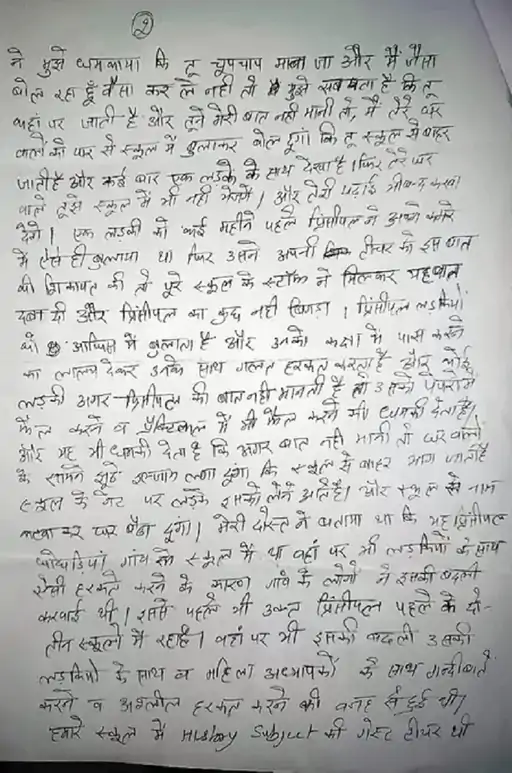 2
ने मुझे धमकाया कि तू चुपचाप मान जा और मैं जैसा
बोल रहा हूँ वैसा कर ले नही तो मुझे सब पता है कि तू
कहां पर जाती है और तूने मेरी बात नही मानी तो, मैं तेरे घर
वालों को घर से स्कूल में बुलाकर बोल दूंगा कि तू स्कूल से बाहर
जाती है और कई बार एक लड़के के साथ देखा है। फिर तेरे घर
वाले तुझे स्कूल में भी नही भेजेगें। और तेरी पढ़ाई भी बन्द करवा
देगें। एक लड़की को कई महीने पहले प्रिंसीपल ने अपने कमरे
में ऐसे ही बुलाया था फिर उसने अपनी टीचर को इस बात
की शिकायत की तो पूरे स्कूल के स्टॉफ ने मिलकर यह बात
दबा दी और प्रिंसीपल का कुछ नही बिगड़ा। प्रिंसीपल लड़कियों
को आफिस में बुलाता है और उनको कक्षा में पास करने
का लालच देकर उनके साथ गलत हरकत करता है और कोई
लड़की अगर प्रिंसीपल की बात नही मानती है तो उसको पेपरों में
फैल करने व प्रैक्टिकल में भी फैल करने की धमकी देता है।
और यह भी धमकी देता है कि अगर बात नही मानी तो घर वालों
के सामने झूठे इल्जाम लगा दूंगा कि स्कूल से बाहर भाग जाती है
स्कूल के गेट पर लड़के इसको लेने आते है। और स्कूल से नाम
काट कर घर बैठा दूंगा। मेरी दोस्त ने बताया था कि यह प्रिंसीपल
गांव के स्कूल में था वहां पर भी लड़कियों के साथ
ऐसी हरकतें करने के कारण गांव के लोगों ने इसकी बदली
करवाई थी। इससे पहले भी उक्त प्रिंसीपल पहले के दो-
तीन स्कूलों में रहा है। वहां पर भी इसकी बदली उसकी
लड़कियों के साथ व महिला अध्यापकों के साथ गन्दी बातें
करने व अश्लील हरकत करने की वजह से हुई थी।
हमारे स्कूल में History Subject की गेस्ट टीचर थी